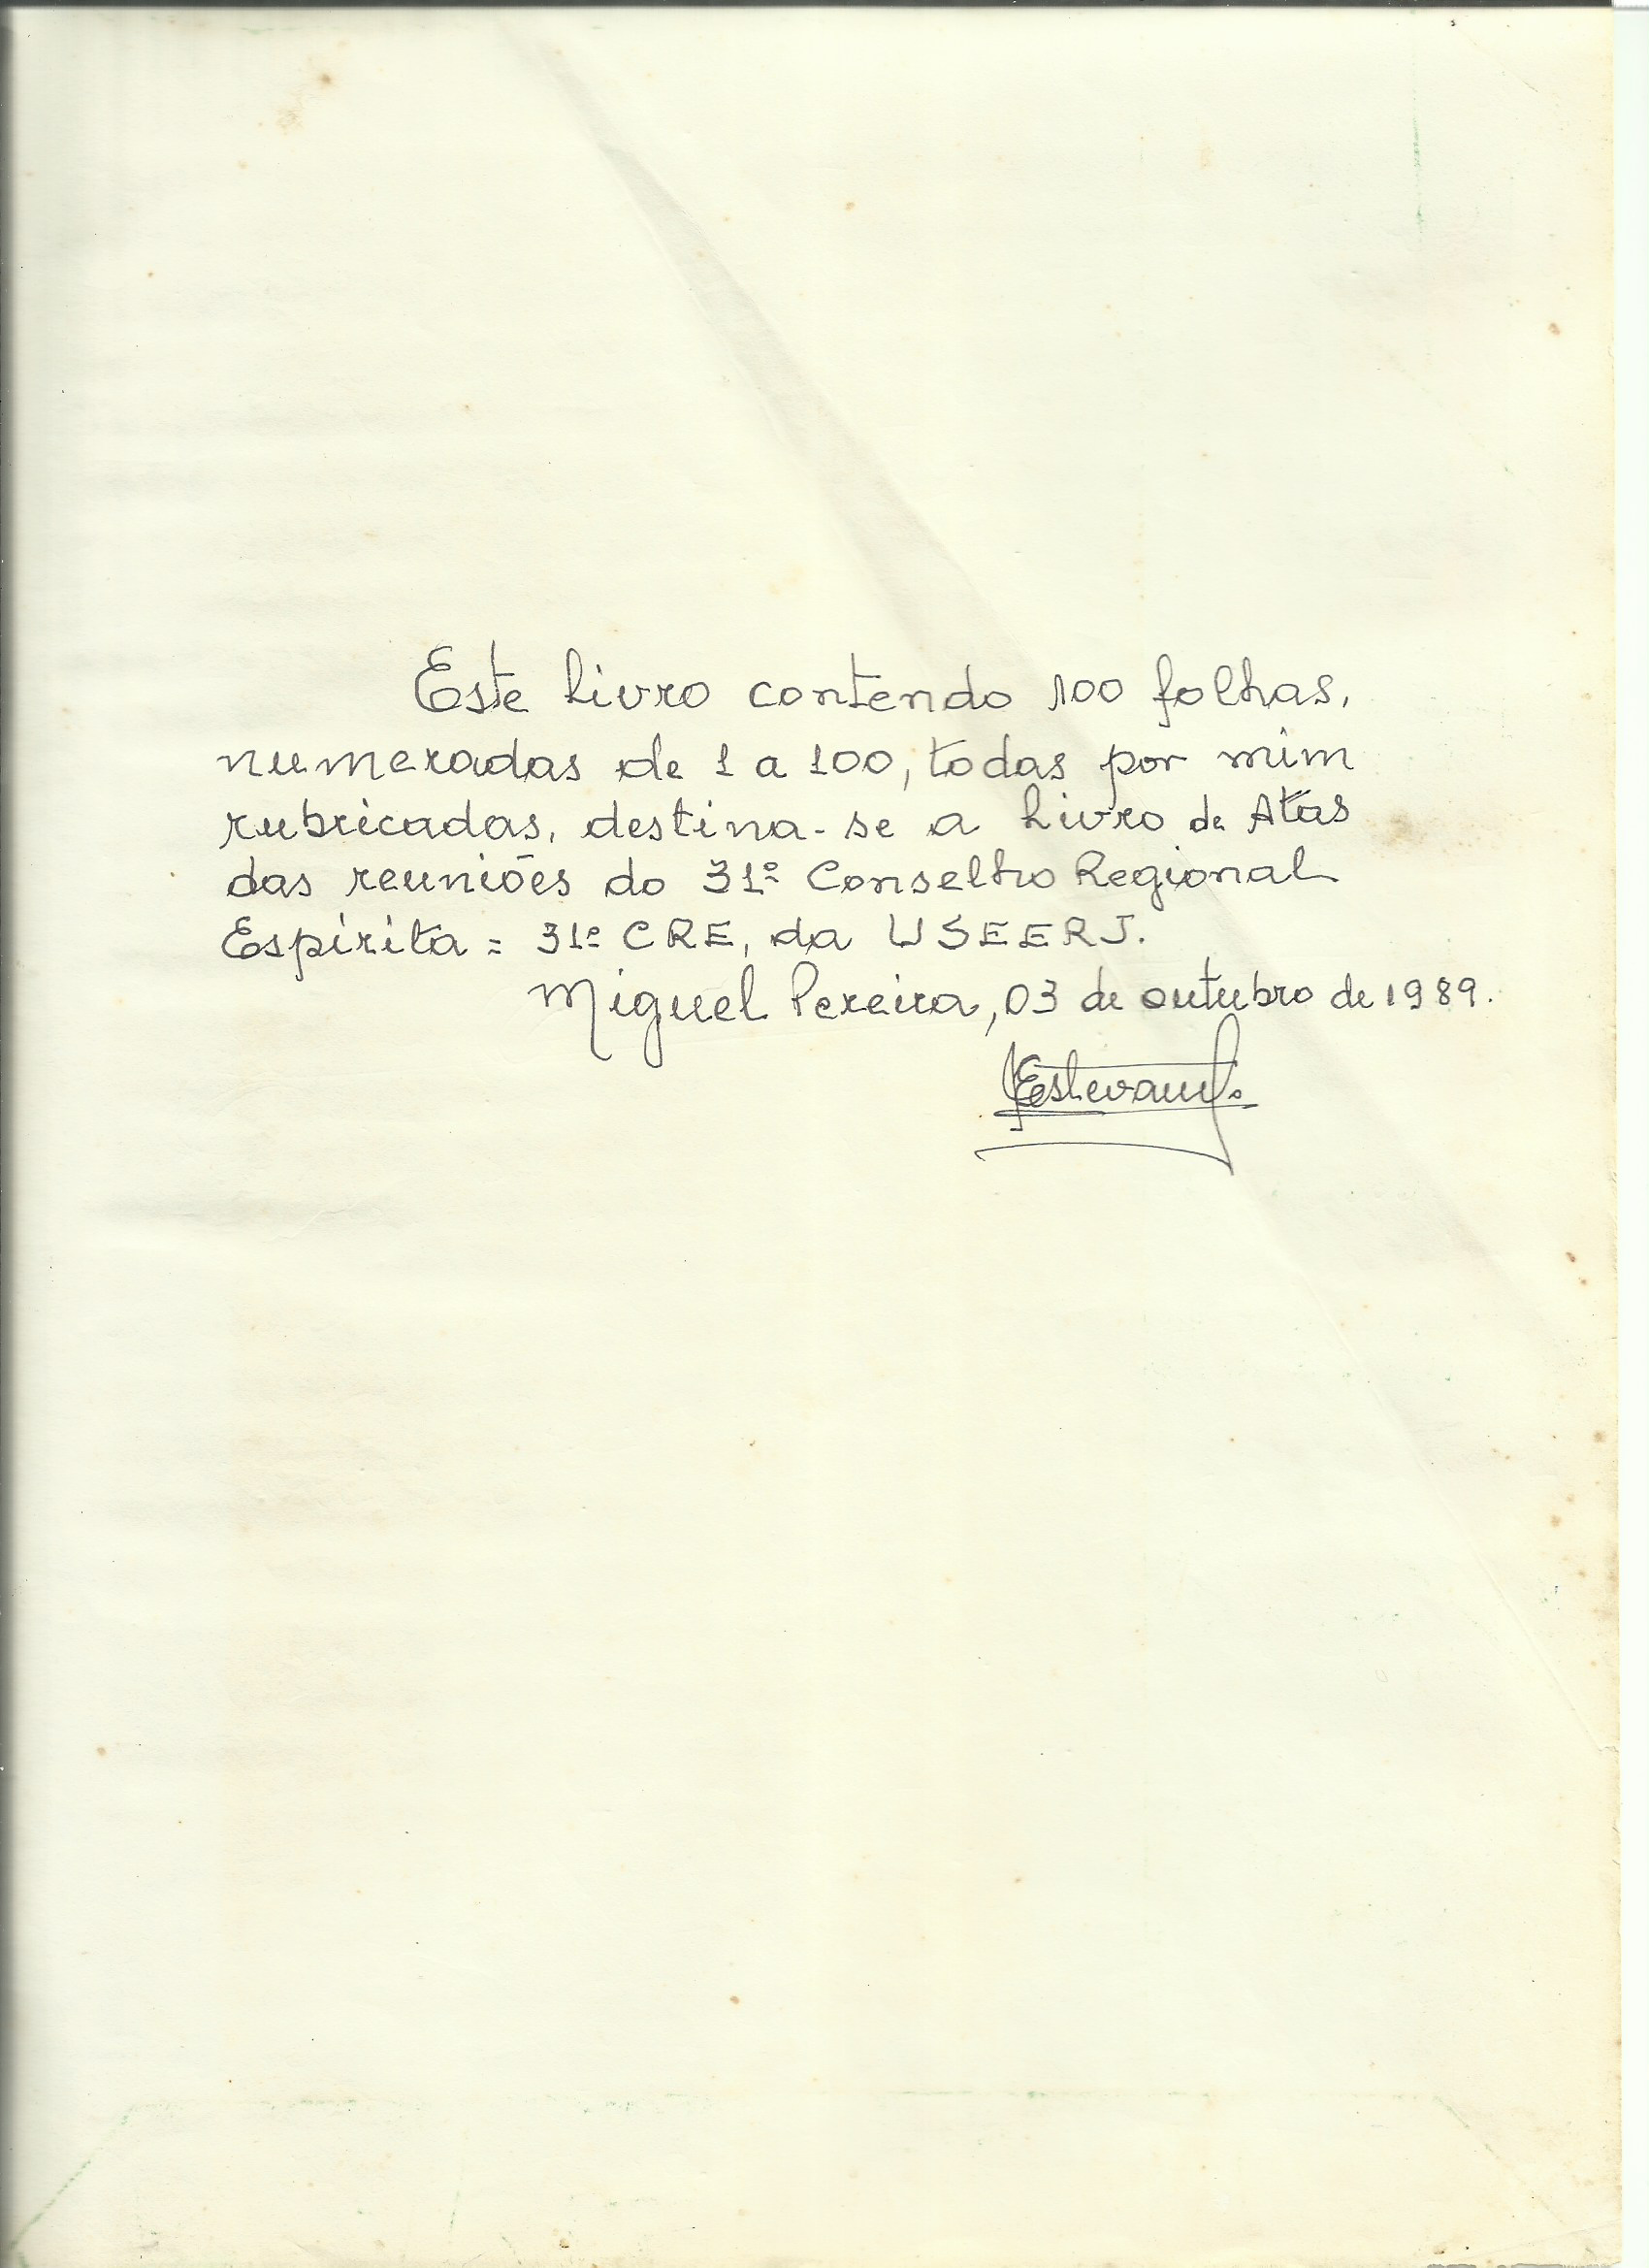 Este livro contendo 100 folhas,
numeradas de 1 a 100, todas por mim
rubricadas, destina-se a Livro de Atas
das reuniões do 31º Conselho Regional
Espírita = 31º CRE, da USEERJ.
Miguel Pereira, 03 de outubro de 1989.